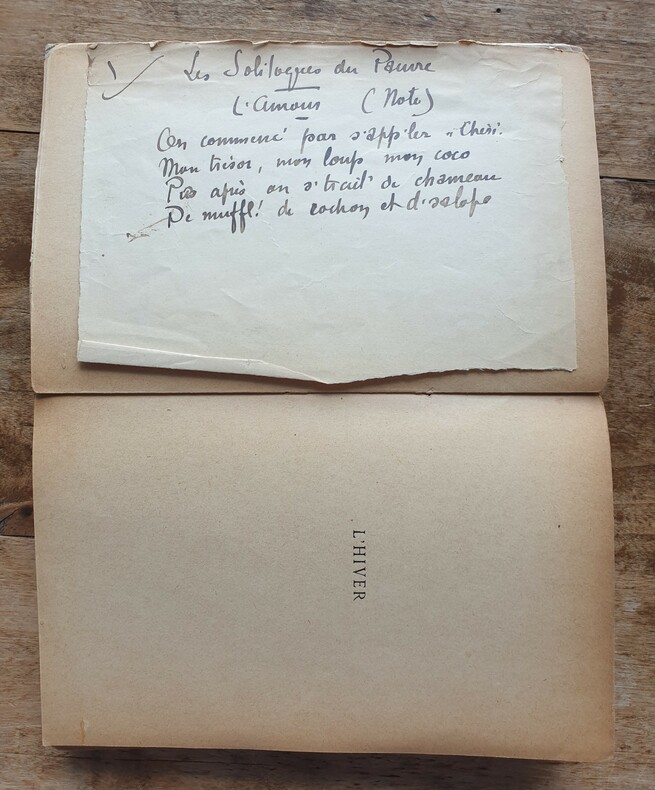 Les Soliloques du Pauvre
L'Amour (Note)
On commenc' par s'app'ler "Chéri.
Mon trésor, mon loup mon coco
Pis après on s'trait' de chameau
De muffl'! de cochon et d'salope
L'HIVER